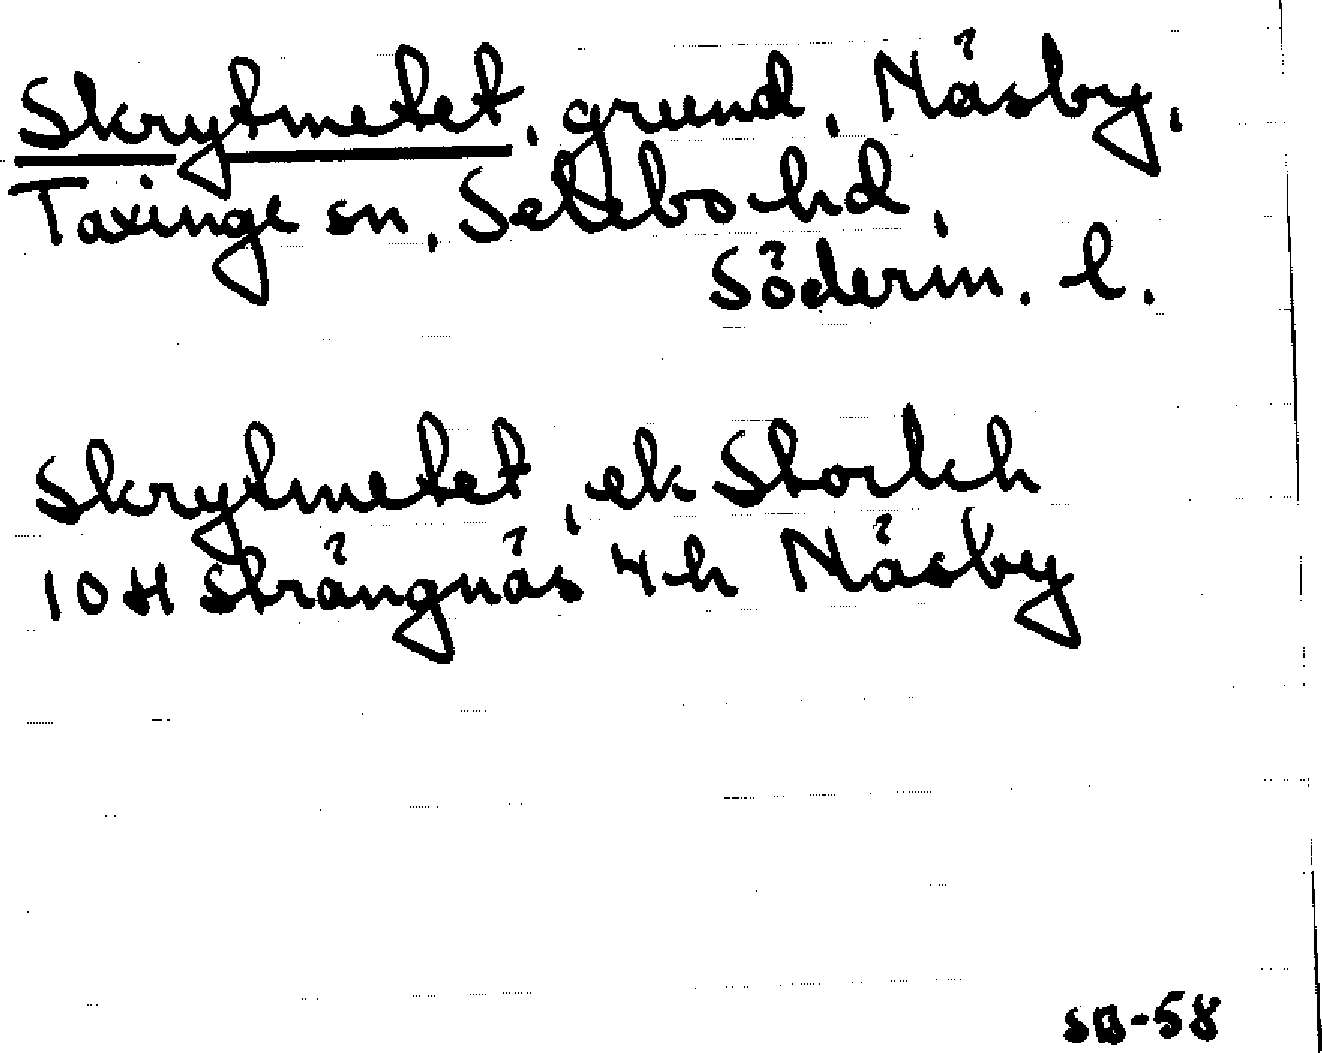 Skrytmetet, grund, Näsby,
Taxinge sn, Selebo hd,
Söderm. l.
Skrytmetet, ek
10 H Strängnäs 4 h Näsby
SB-58